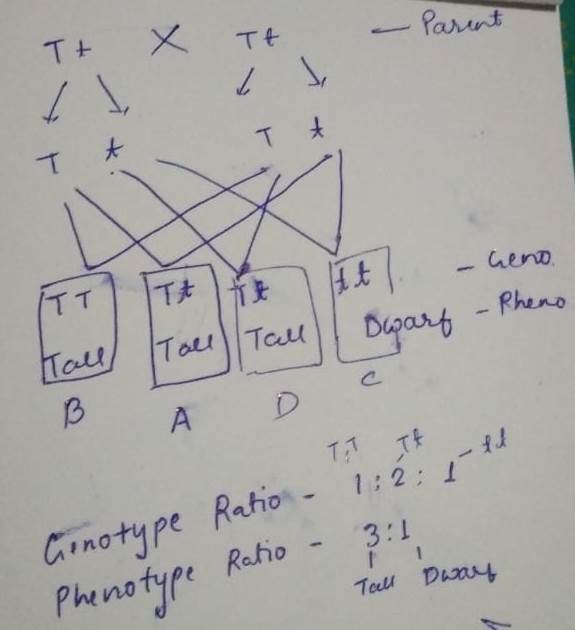 Tt X Tt - Parent
T t T t
TT Tt Tt tt - Geno.
Tall Tall Tall Dwarf - Pheno
B A D C
TT Tt - tt
Genotype Ratio - 1:2:1
Phenotype Ratio - 3:1
Tall Dwarf